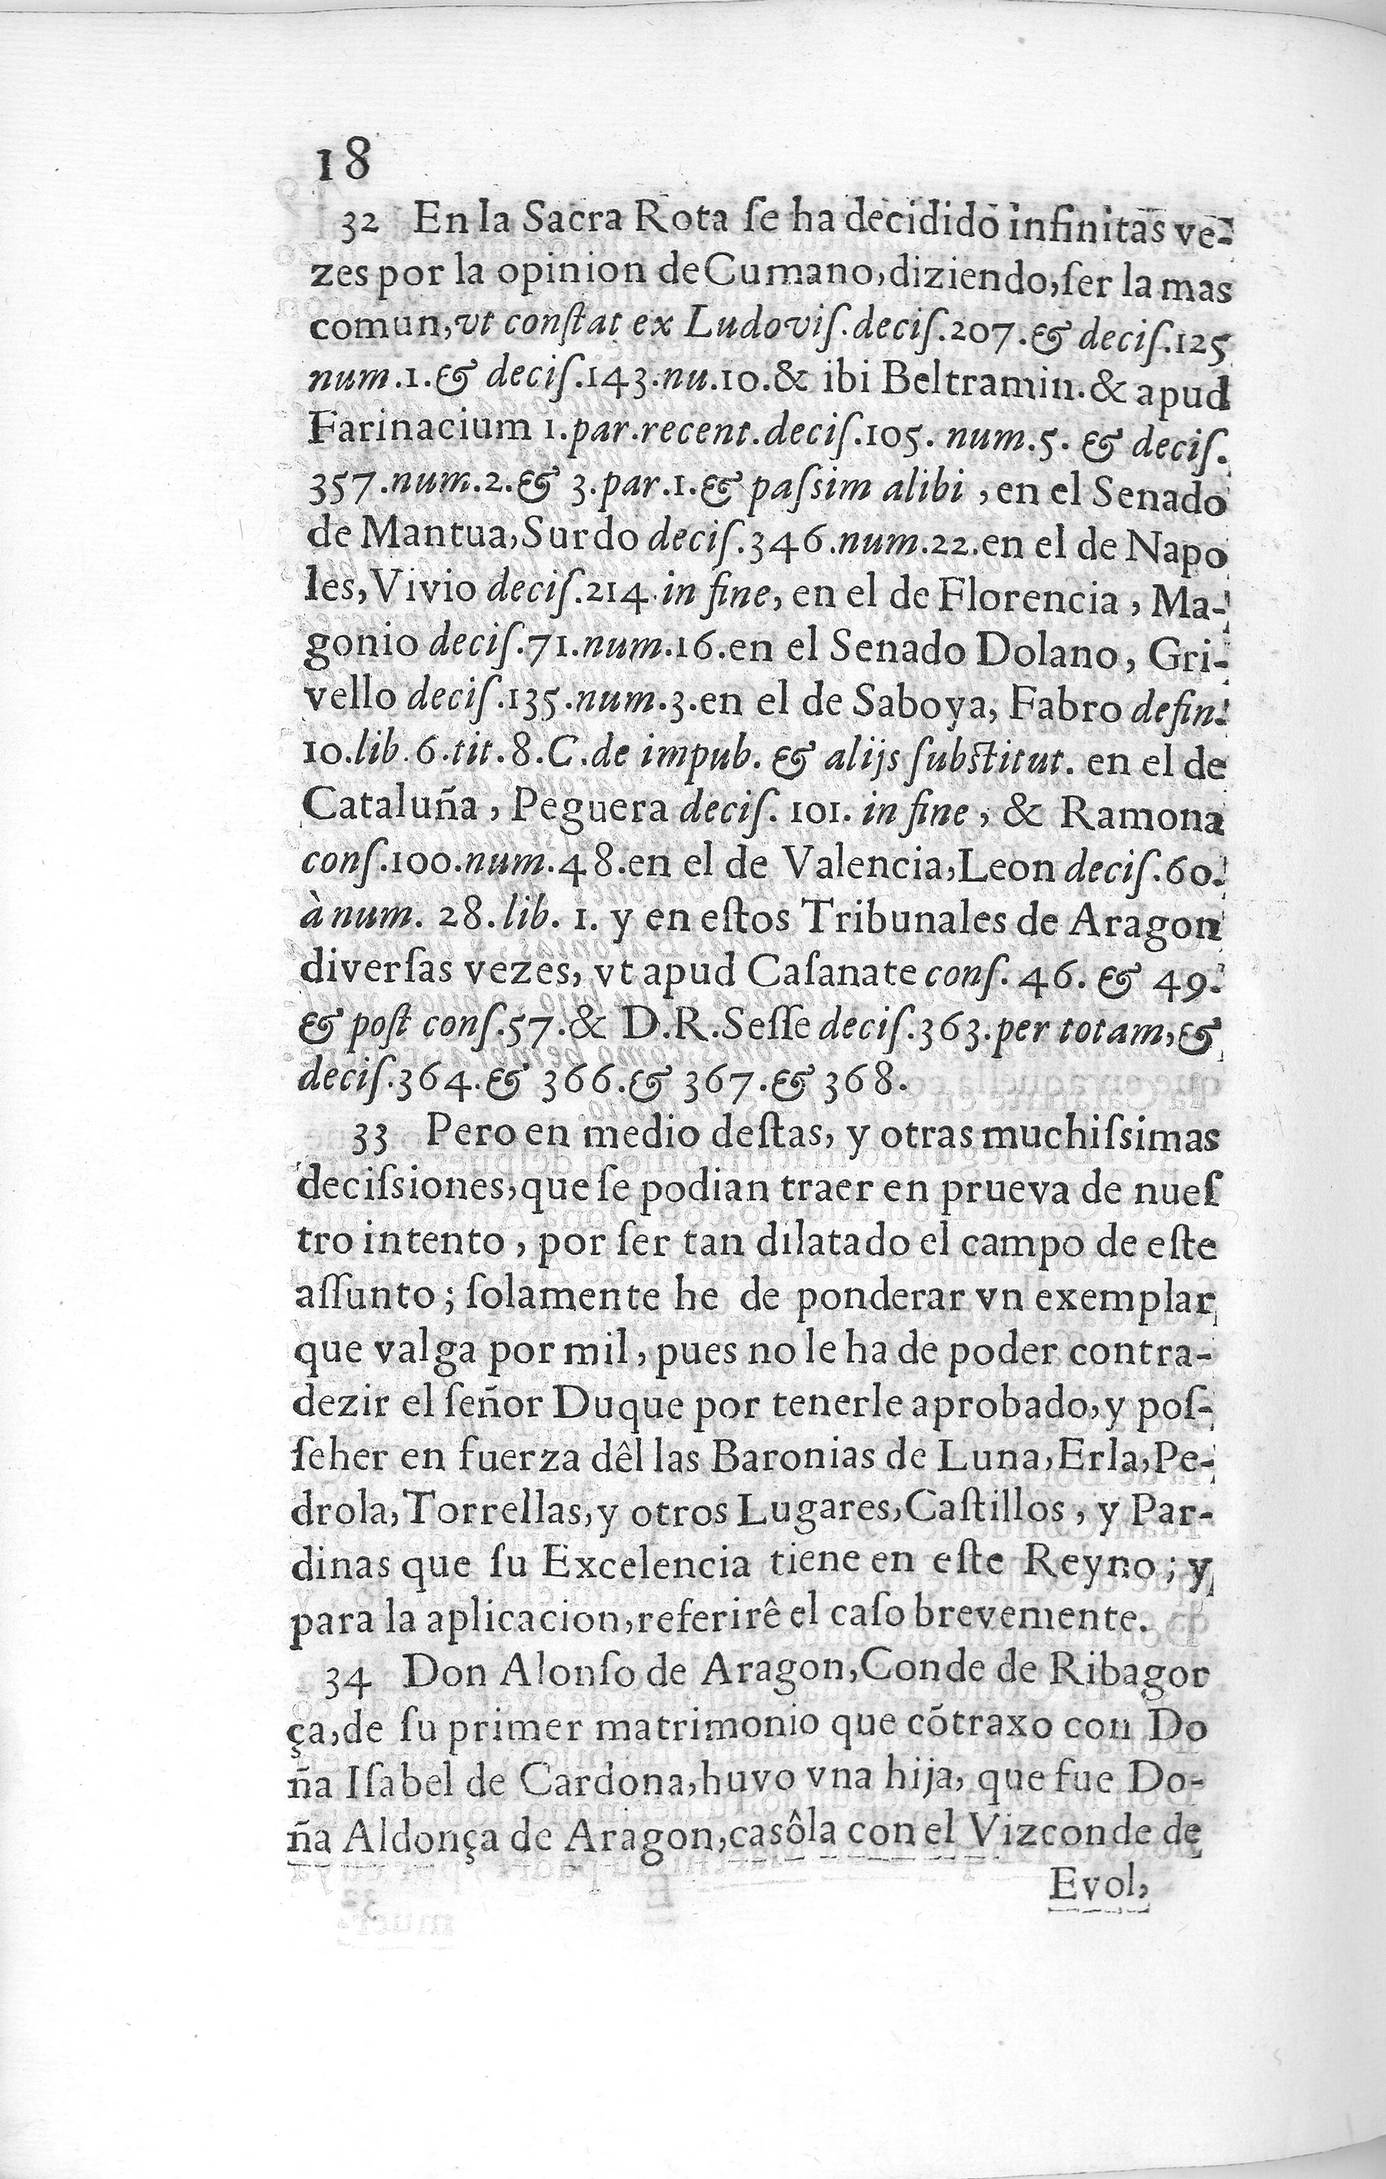 18
32 En la Sacra Rota ſe ha decidido infinitas ve-
zes por la opinion de Cumano, diziendo, ſer la mas
comun, vt conſtat ex Ludoviſ. deciſ. 207. & deciſ. 125
num. 1. & deciſ. 143. nu. 10. & ibi Beltramin. & apud
Farinacium 1. par. recent. deciſ. 105. num. 5. & deciſ.
357. num. 2. & 3. par. 1. & paſsim alibi, en el Senado
de Mantua, Surdo deciſ. 346. num. 22. en el de Napo
les, Vivio deciſ. 214. in fine, en el de Florencia, Ma-
gonio deciſ. 71. num. 16. en el Senado Dolano, Gri-
vello deciſ. 135. num. 3. en el de Saboya, Fabro defin.
10. lib. 6. tit. 8. C. de impub. & alijs ſubſtitut. en el de
Cataluña, Peguera deciſ. 101. in fine, & Ramona
conſ. 100. num. 48. en el de Valencia, Leon deciſ. 60.
à num. 28. lib. 1. y en eſtos Tribunales de Aragon
diverſas vezes, vt apud Caſanate conſ. 46. & 49.
& poſt conſ. 57. & D. R. Seſſe deciſ. 363. per totam, &
deciſ. 364. & 366. & 367. & 368.
33 Pero en medio deſtas, y otras muchiſsimas
deciſsiones, que ſe podian traer en prueva de nueſ
tro intento, por ſer tan dilatado el campo de eſte
aſſunto; ſolamente he de ponderar vn exemplar
que valga por mil, pues no le ha de poder contra-
dezir el ſeñor Duque por tenerle aprobado, y poſ-
ſeher en fuerza dêl las Baronias de Luna, Erla, Pe-
drola, Torrellas, y otros Lugares, Caſtillos, y Par-
dinas que ſu Excelencia tiene en eſte Reyno; y
para la aplicacion, referirê el caſo brevemente.
34 Don Alonſo de Aragon, Conde de Ribagor
ça, de ſu primer matrimonio que cõtraxo con Do
ña Iſabel de Cardona, huvo vna hija, que fue Do-
ña Aldonça de Aragon, casôla con el Vizconde de
Evol,